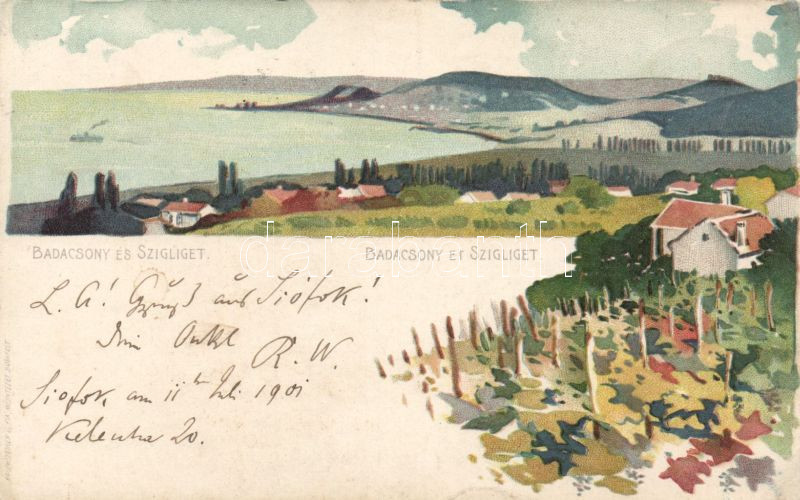 BADACSONY ÉS SZIGLIGET.
BADACSONY ET SZIGLIGET.
L. A! Gruß aus Siófok!
Dein Onkel
R. W.
Siofok, am 11ten Juli 1901
20.